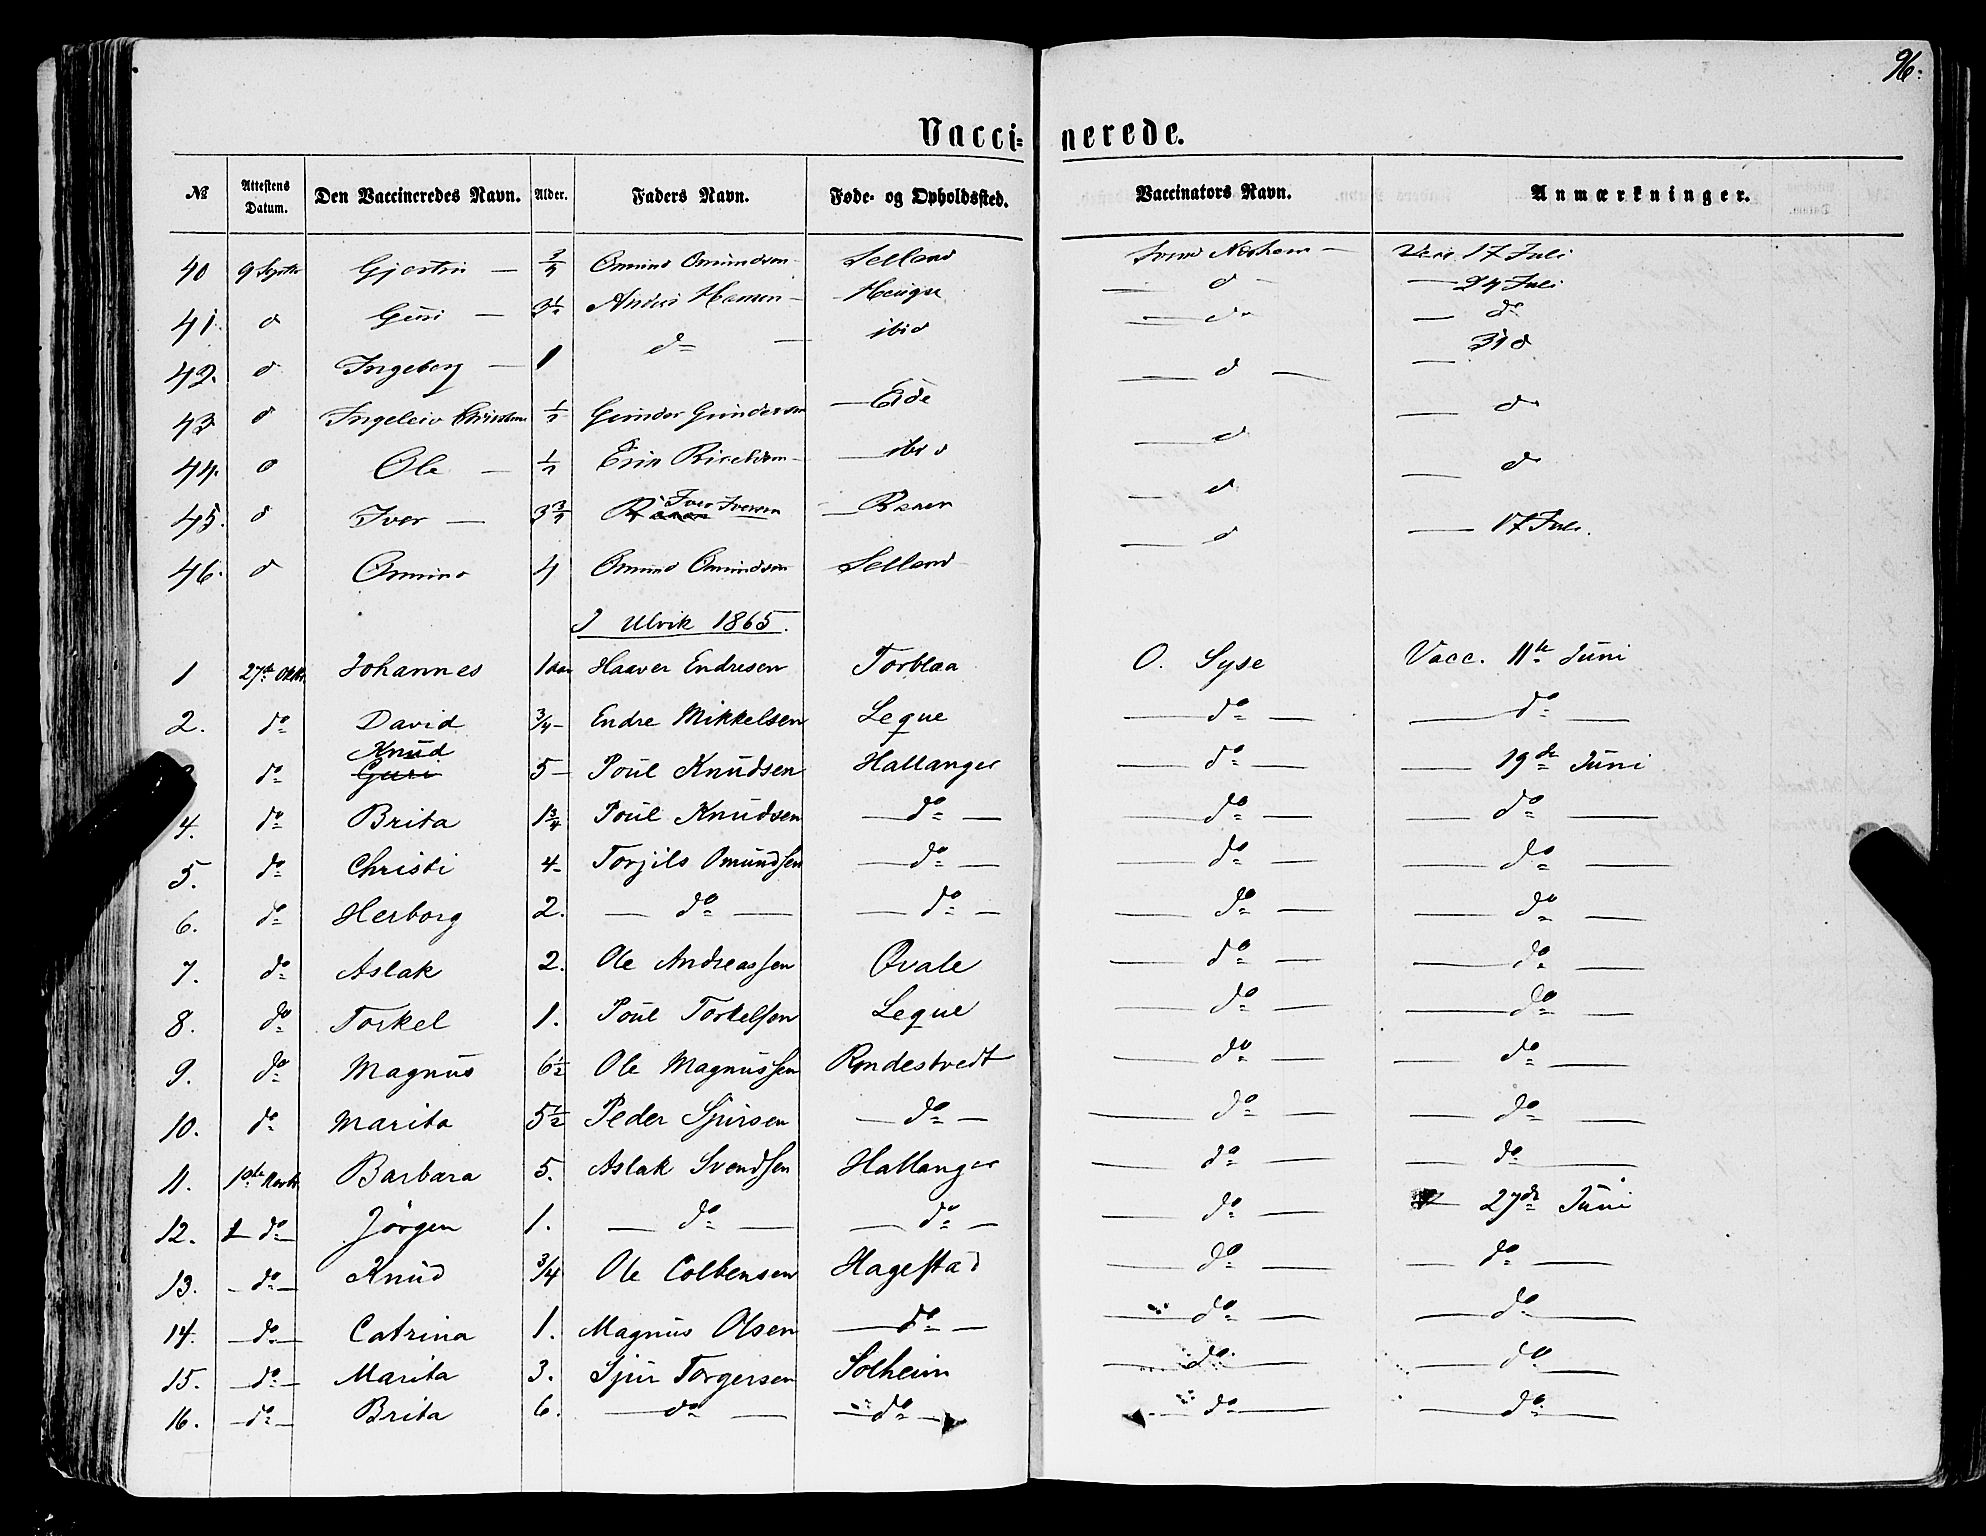 96.
Vaccinerede.
№ Attestens Datum. Den Vaccineredes Navn. Alder. Faders Navn. Føde- og Opholdssted. Vaccinators Navn. Anmærkninger.
40 9 Septbr Gjertru — 3/4 Omund Omundson Selland — 17 Juli
41. d Guri — Anders Hansen — d — — 24 Juli
42. d Ingeborg — 1 d — ibid — d — d
43 d Ingeleiv 1/2 Gunder Gunderson — Eide — d — — 31 d
44. d Ole — 1/2 — ibid — d — d
45. d Iver — 3 3/4 Iver Iversen — d — d
46. d Omund 4 Omund Omundson Selland — d — 17 Juli.
I Ulvik 1865.
1 27de Oktbr. Johannes 1 aar Haaver Endresen Torblaa O. Syse Vacc. 11te Juni
2. do David 3/4 – Endre Mikkelsen Leque — do — — do —
do Knud Guri 5 – Poul Knudsen Hallanger — do — — 19de Juni
4. do Brita 1 3/4 Poul Knudsen — do — — do — — do —
5. do Christi 4 – Torjils Omundsen — do — — do — — do —
6. do Herborg 2. — do — — do — — do — — do —
7. do Aslak 2. Ole Andreassen Qvale — do — — do —
8. do Torkel 1. Poul Torkelsen Leque — do — — do —
9. do Magnus 6 1/2 Ole Magnussen Røndestvedt — do — — do —
10. do Marita 5 1/2 Peder Sjursen — do — — do — — do —
11. 1ste Novbr. Barbara 5. Aslak Svendsen Hallanger — do — — do —
12. do Jörgen 1. — do — — do — — do — — 27de Juni
13. – do – Knud 3/4 Ole Colbensen Hagestad — do — — do —
14. – do – Catrina 1. Magnus Olsen — do — — do — — do —
15. – do – Marita 3. Sjur Torgersen Solheim — do — — do —
16. – do – Brita 6. — do — — do — — do — — do —